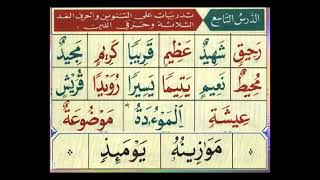 الدرس التاسع
تدريبات على التنوين واحرف المد
الثلاثة وحرفي اللين
رَحِيقٍ شَهِيدٌ عَظِيمٍ قَرِيبًا كَرِيمٍ مَجِيدٌ
مُحِيطٌ نَعِيمٍ يَتِيمًا يَسِيرًا رُوَيْدًا قُرَيْشٍ
عِيشَةٍ الْمَوْءُدَةُ مَوْضُوعَةٌ
مَوَازِينُهُ يَوْمَئِذٍ